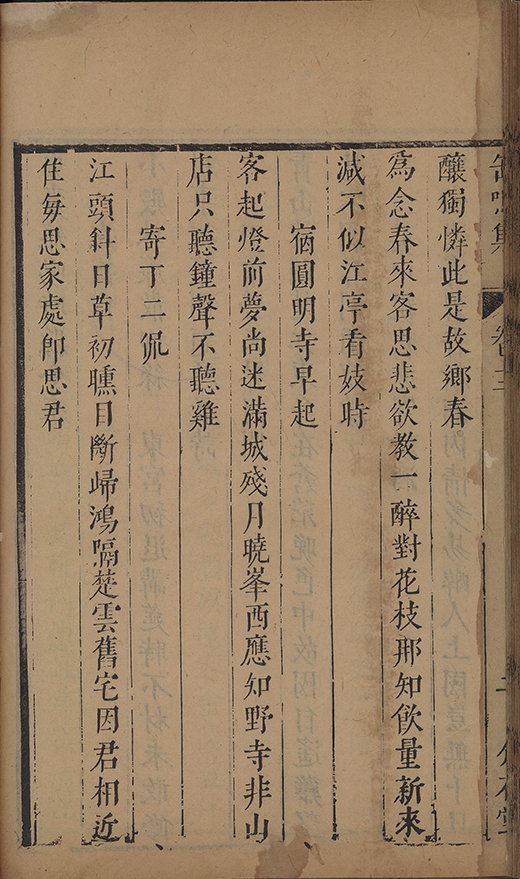 缶鳴集
釀獨憐此是故鄉春
為念春來客思悲欲教一醉對花枝那知飲量新來
減不似江亭看妓時
宿圓明寺早起
客起燈前夢尚迷滿城殘月曉峯西應知野寺非山
店只聽鐘聲不聽雞
寄丁二侃
江頭斜日草初曛目斷歸鴻隔楚雲舊宅因君相近
住每思家處卽思君